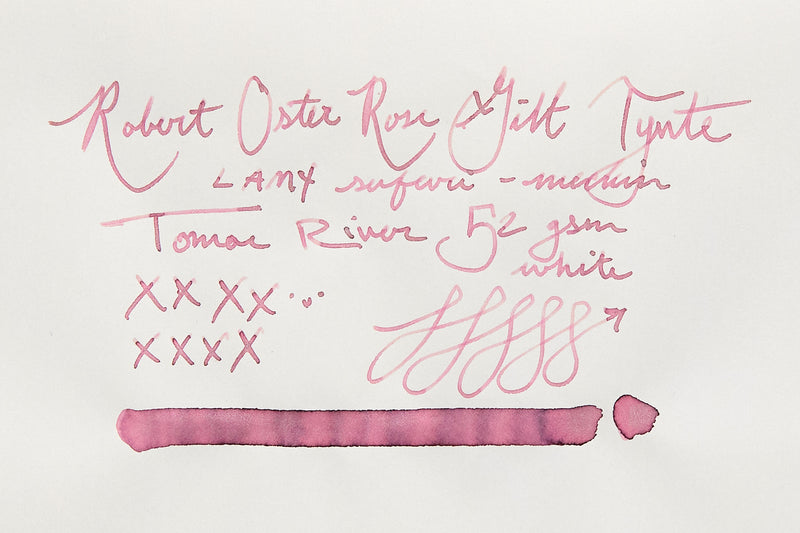 Robert Oster Rose Gilt Tynte
LAMY safari - medium
Tomoe River 52 gsm
white
XX XX
XXXX